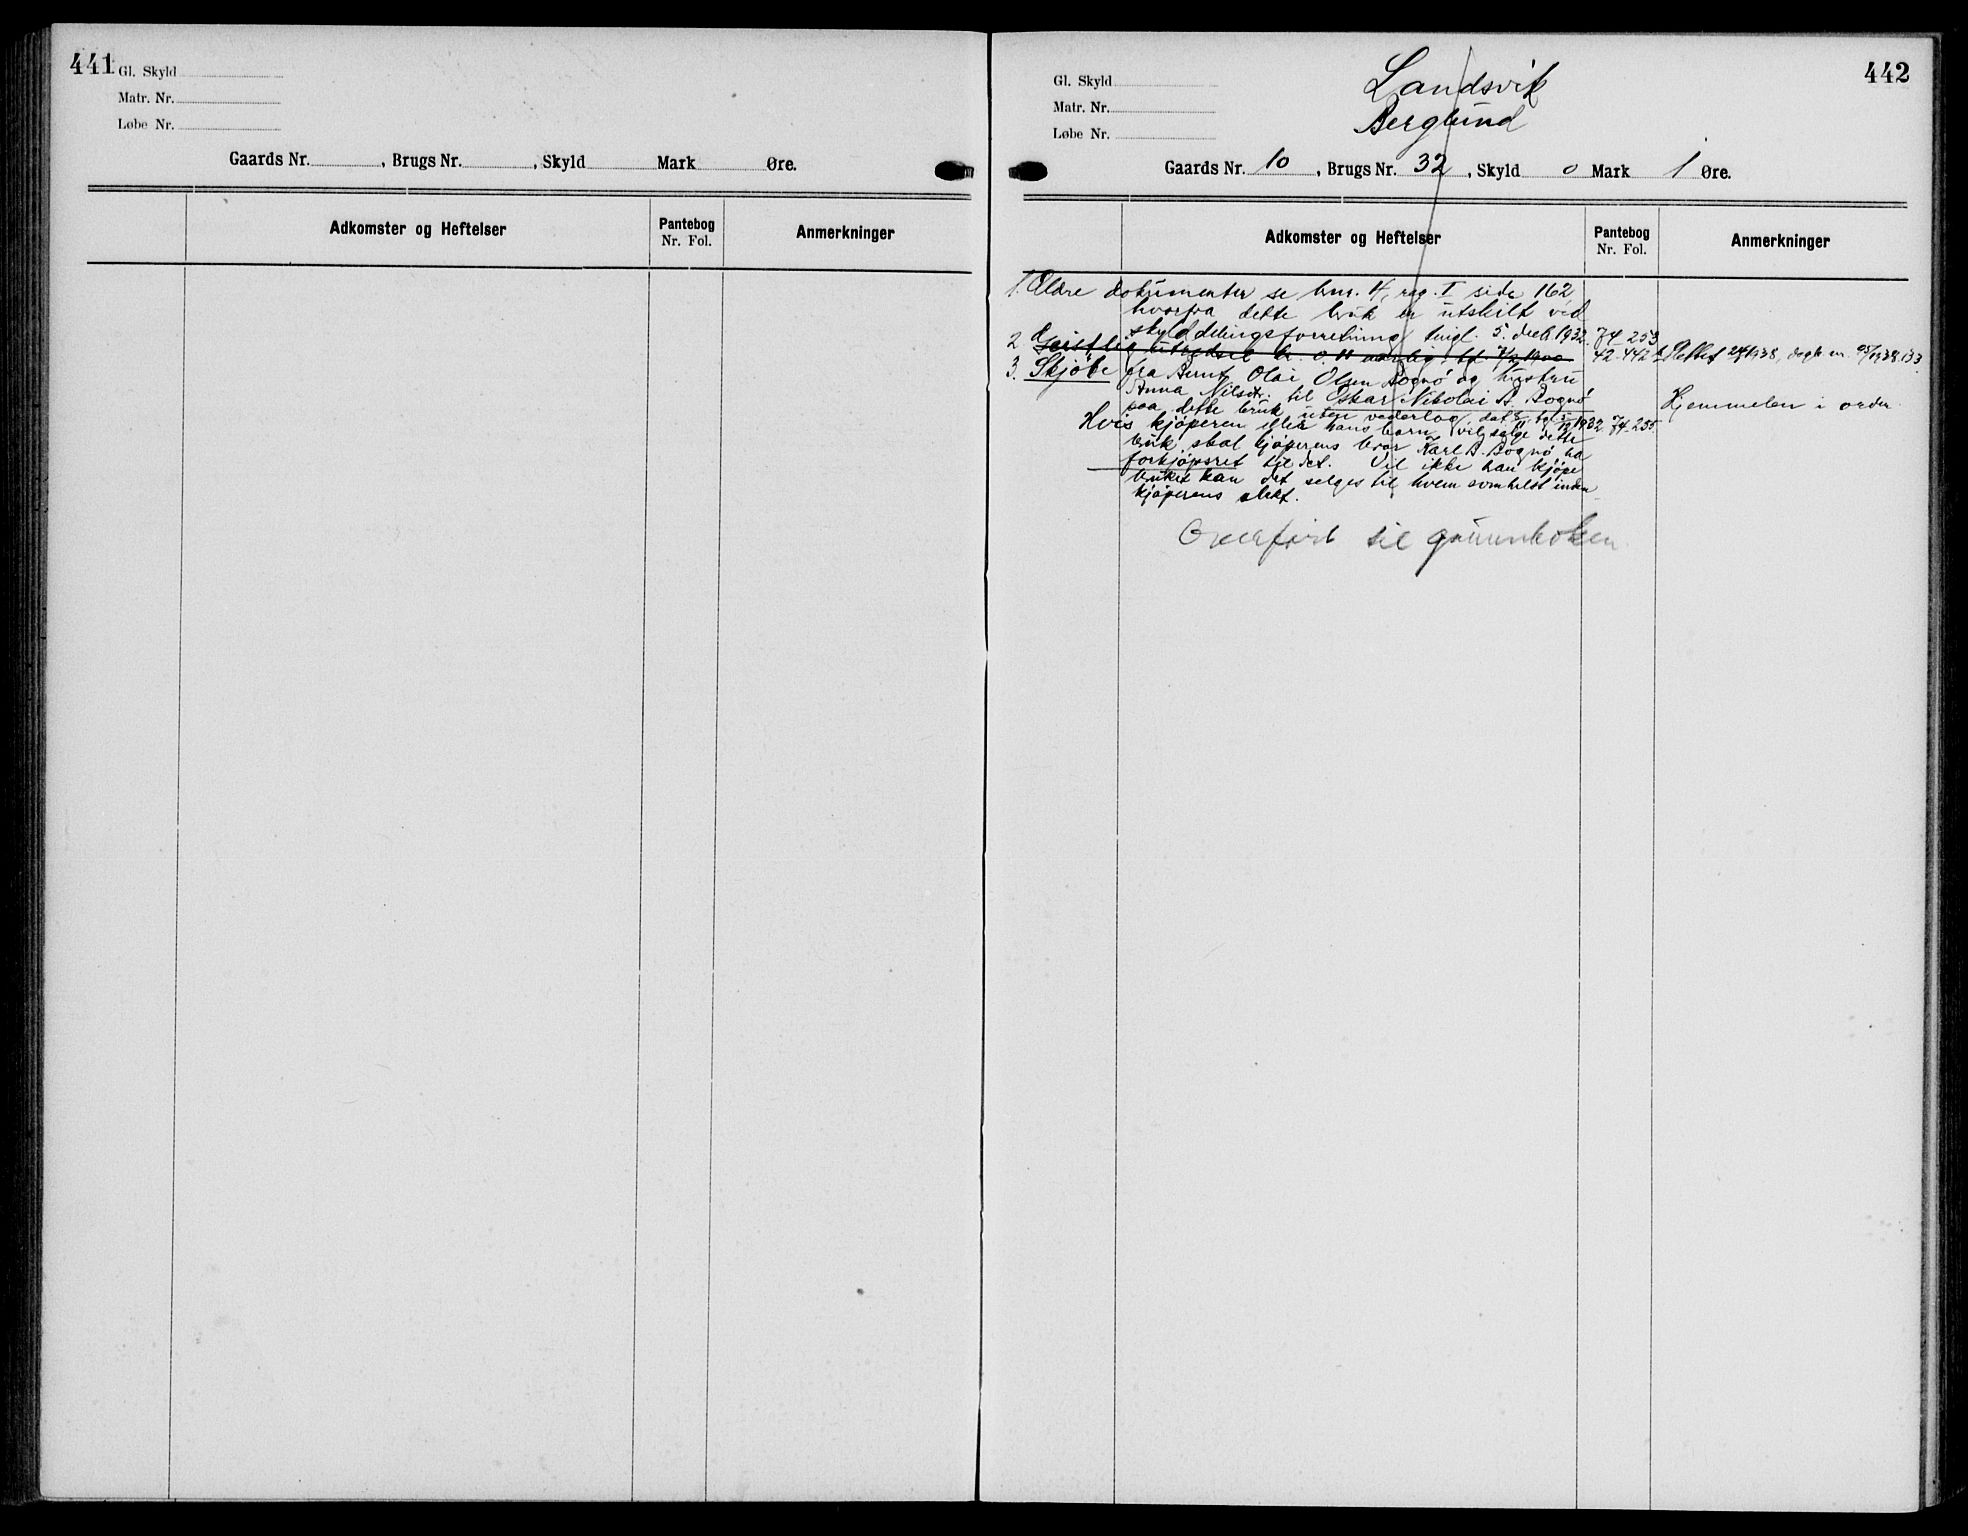 441
Gl. Skyld
Matr. Nr.
Løbe Nr.
Gaards Nr. , Brugs Nr. , Skyld Mark Øre.
Adkomster og Heftelser
Pantebog
Nr. Fol.
Anmerkninger
442
Gl. Skyld
Matr. Nr.
Løbe Nr.
Landsvik
Berglund
Gaards Nr. 10 , Brugs Nr. 32 , Skyld 0 Mark 1 Øre.
Adkomster og Heftelser
Pantebog
Nr. Fol.
Anmerkninger
1. Ældre dokumenter se bnr. 4, reg. I side 162,
hvorfra dette bruk er utskilt ved
skylddelingsforretning tingl. 5. decb. 1932. 74 253
2 Geistlig utredsel kr. 0.11 aarlig 1900 42. 442 Slettet 1938, dagb. nr. 1938.
3. Skjöte fra Bernt Olai Olsen Bognö og hustru
Anna Nilsdtr. til Oskar Nikolai B. Bognö Hjemmelen i orden
paa dette bruk uten vederlag, dat. tgl. 1932. 74. 255
Hvis kjöperen eller hans barn vil selge dette
bruk skal kjöperens bror Karl B. Bognö ha
forkjöpsret til det. Vil ikke han kjöpe
bruket kan det selges til hvem somhelst inden
kjöperens slekt.
Overfört til grunnboken